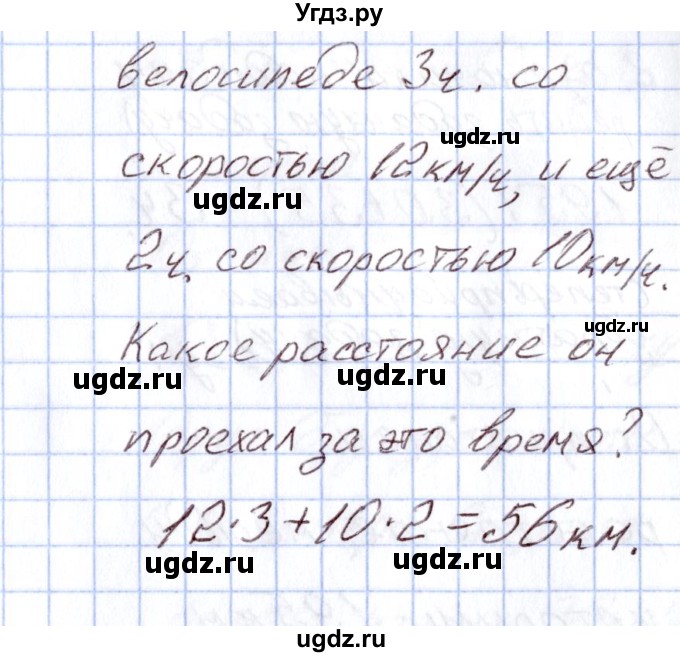 Угдз.ру
велосипеде 3ч. со
ugdz.ru
скоростью 12км/ч, и ещё
ugdz.ru
2ч. со скоростью 10км/ч.
ugdz.ru
Какое расстояние он
ugdz.ru ugdz.ru
проехал за это время?
12·3+10·2=56км.
ugdz.ru ugdz.ru
ugdz.ru